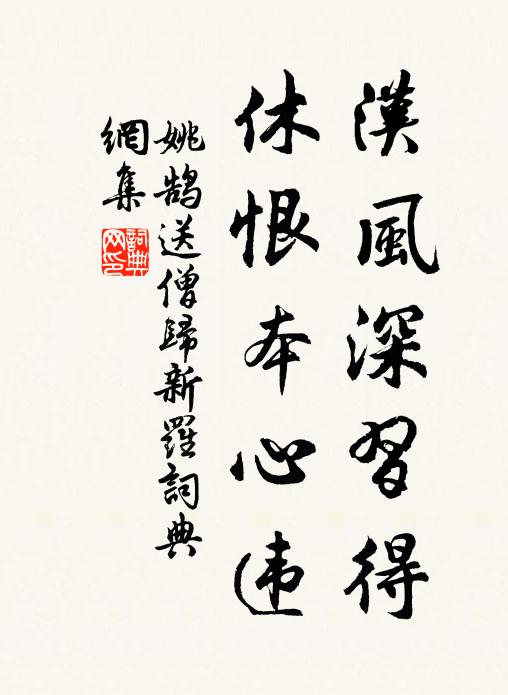 漢風深習得
休恨本心违
姚鹄送僧歸新羅詞典
網集
詞典
网印